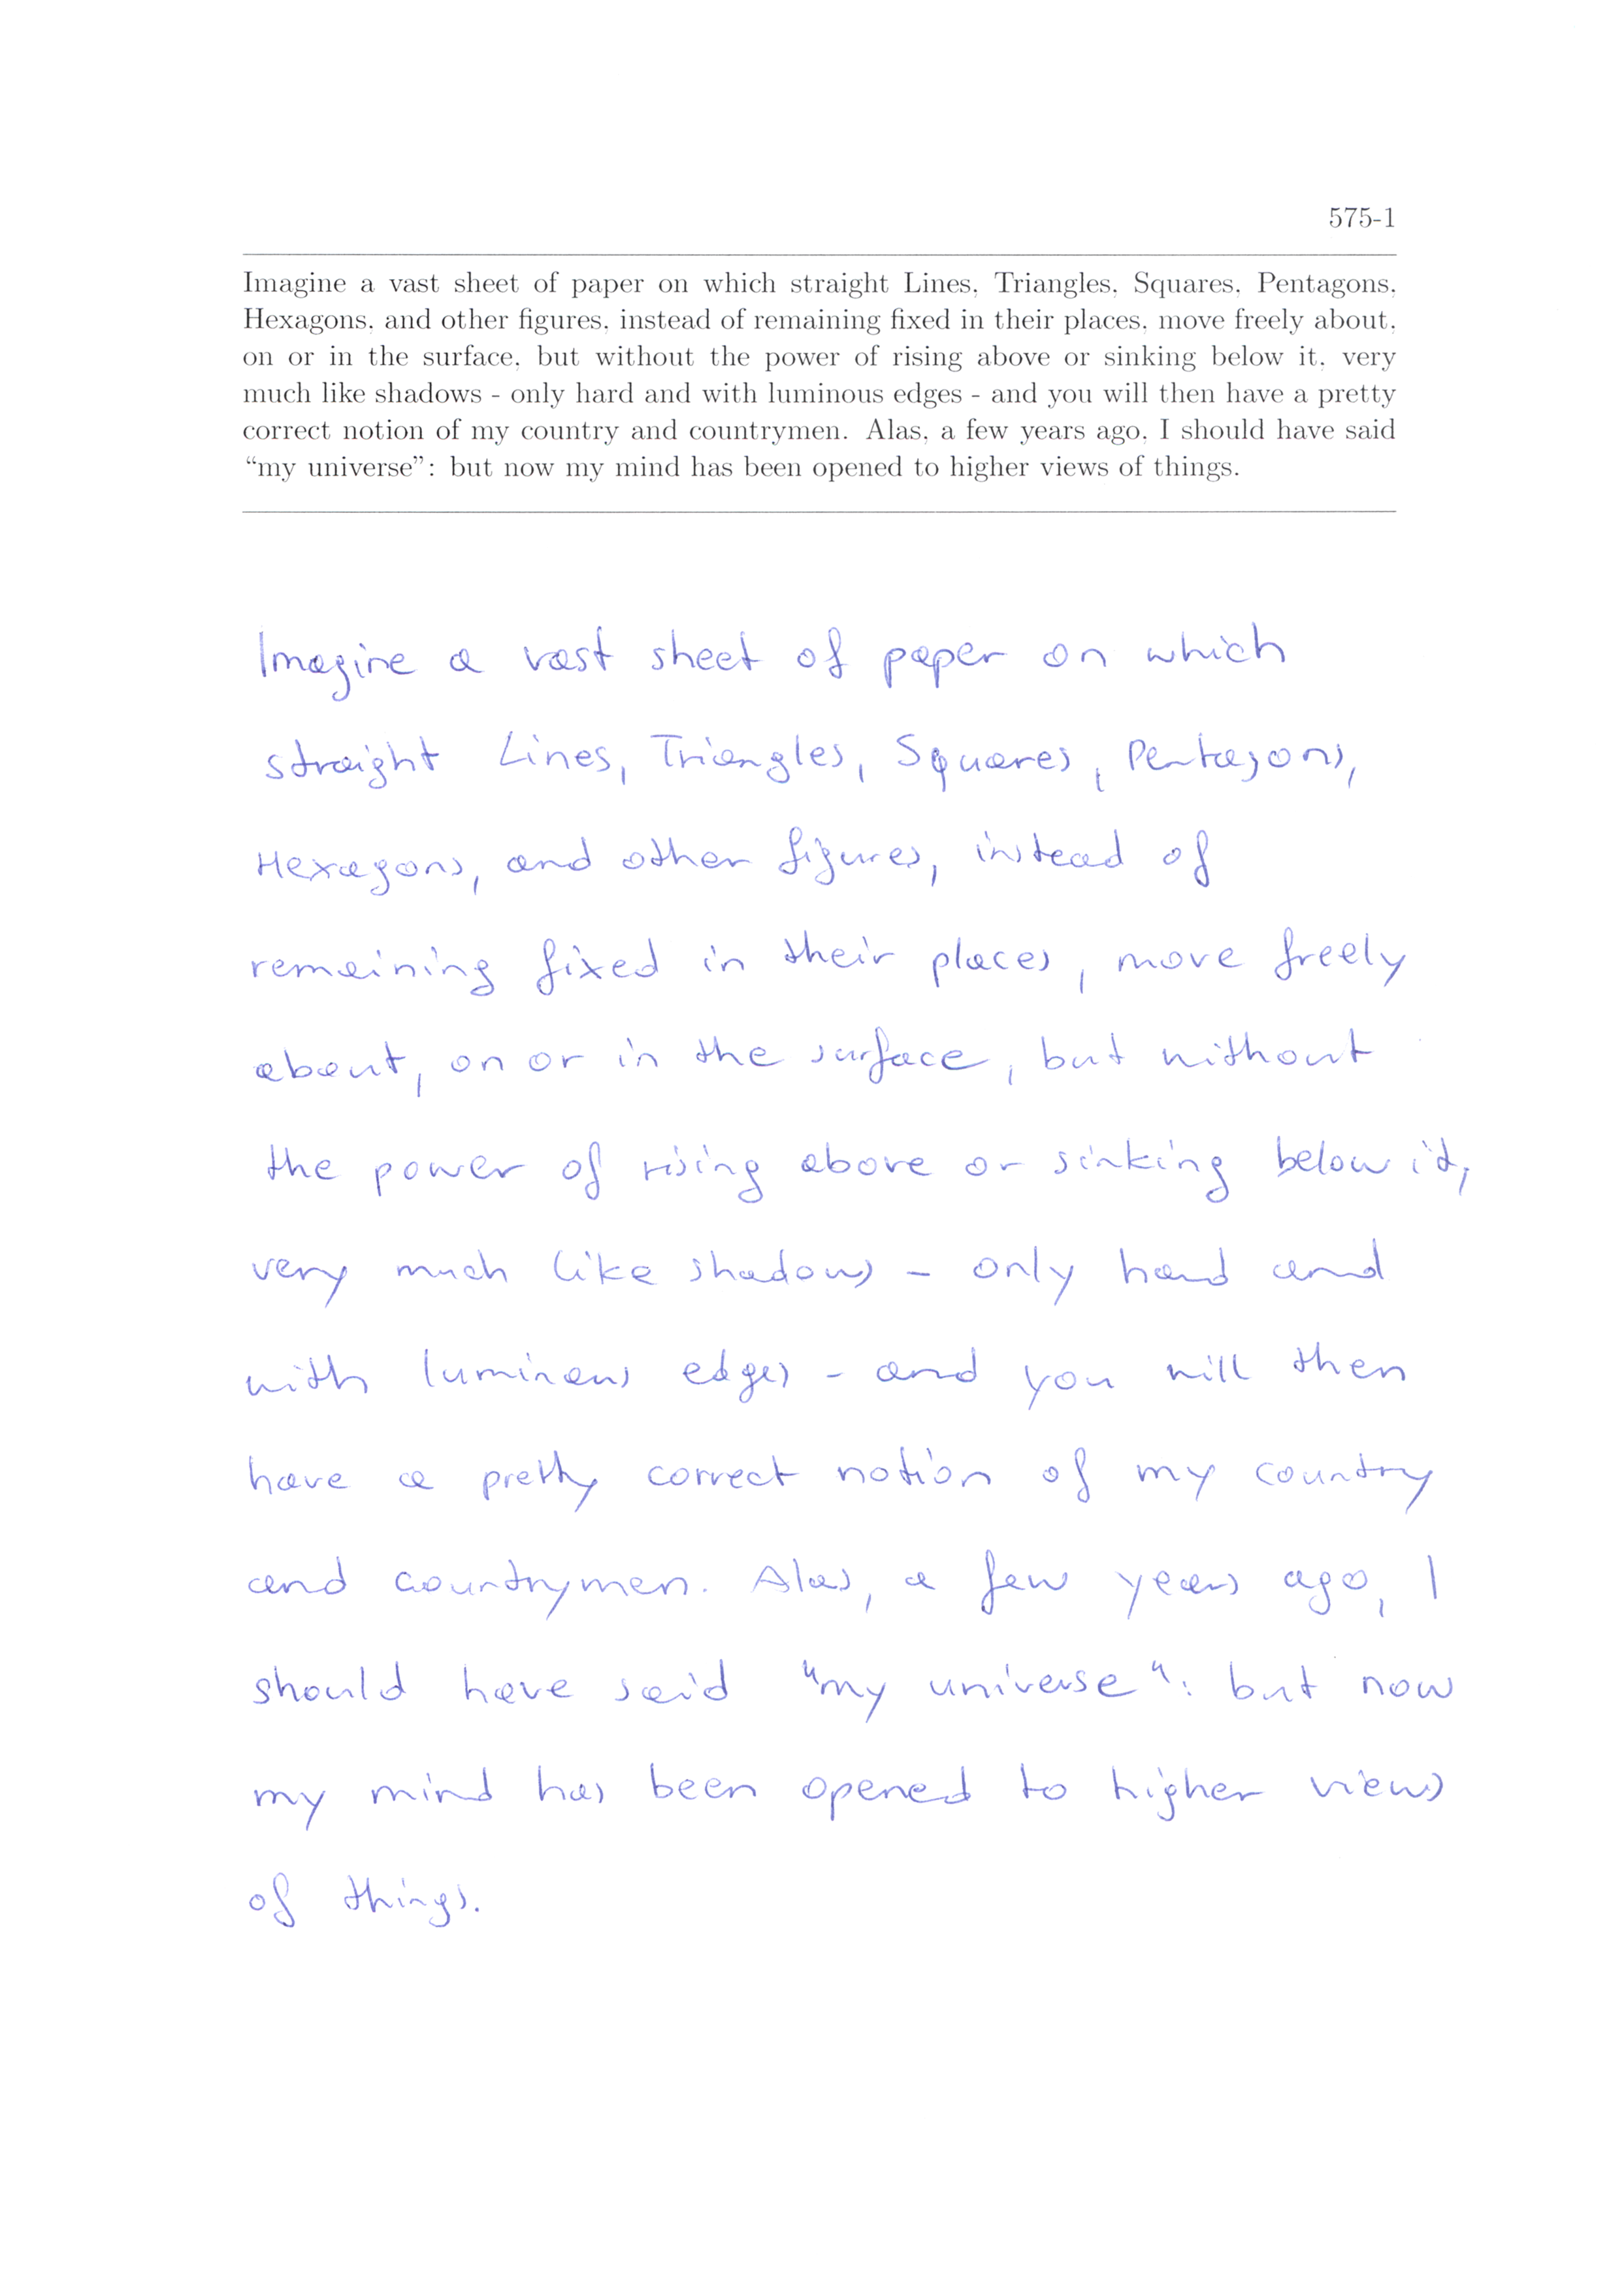 575-1
Imagine a vast sheet of paper on which straight Lines, Triangles, Squares, Pentagons,
Hexagons, and other figures, instead of remaining fixed in their places, move freely about,
on or in the surface, but without the power of rising above or sinking below it, very
much like shadows - only hard and with luminous edges - and you will then have a pretty
correct notion of my country and countrymen. Alas, a few years ago, I should have said
“my universe”: but now my mind has been opened to higher views of things.
Imagine a vast sheet of paper on which
straight Lines, Triangles, Squares, Pentagons,
Hexagons, and other figures, instead of
remaining fixed in their places, move freely
about, on or in the surface, but without
the power of rising above or sinking below it,
very much like shadows - only hard and
with luminous edges - and you will then
have a pretty correct notion of my country
and countrymen. Alas, a few years ago, I
should have said "my universe": but now
my mind has been opened to higher views
of things.